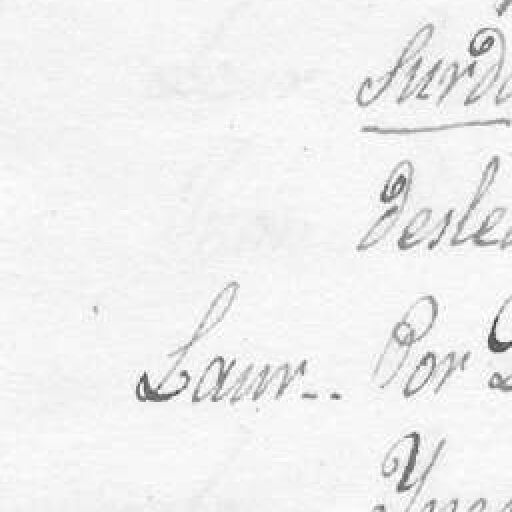 Surd
desle
Laur.. Por